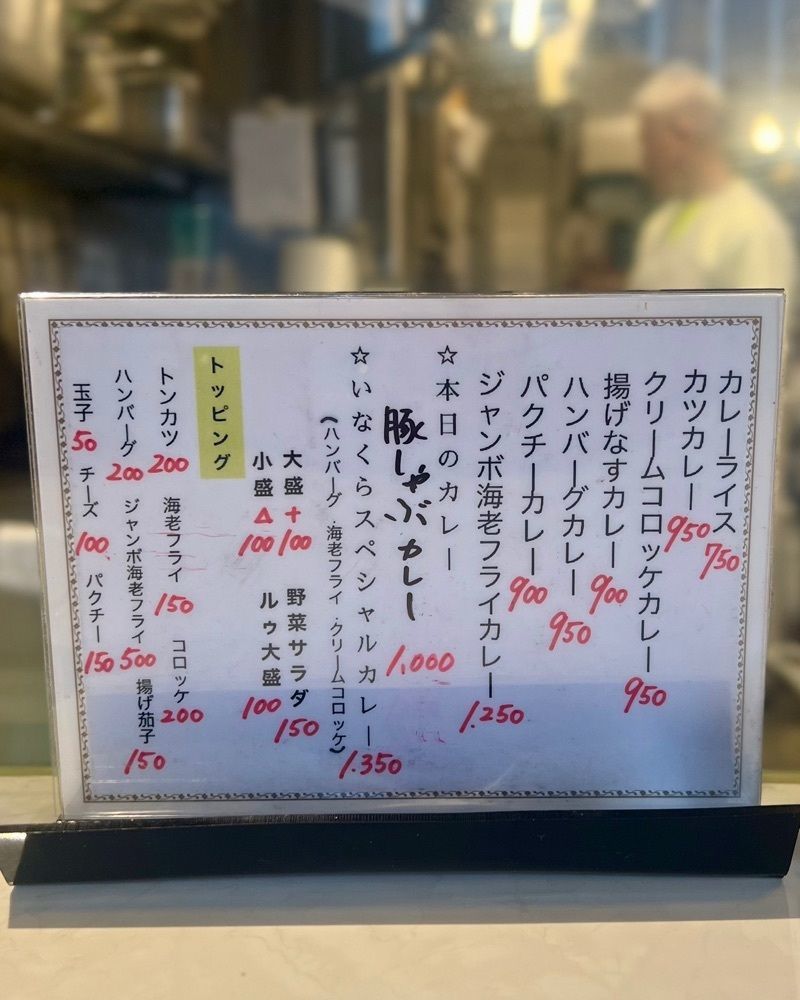 カレーライス 750
カツカレー 950
クリームコロッケカレー 950
揚げなすカレー 900
ハンバーグカレー 950
パクチーカレー 900
ジャンボ海老フライカレー 1.250
☆本日のカレー
豚しゃぶカレー 1,000
☆いなくらスペシャルカレー 1.350
(ハンバーグ 海老フライ クリームコロッケ)
大盛+100 野菜サラダ 150
小盛△100 ルゥ大盛 100
トッピング
トンカツ 200 海老フライ 150 コロッケ 200
ハンバーグ 200 ジャンボ海老フライ 500 揚げ茄子 150
玉子 50 チーズ 100 パクチー 150